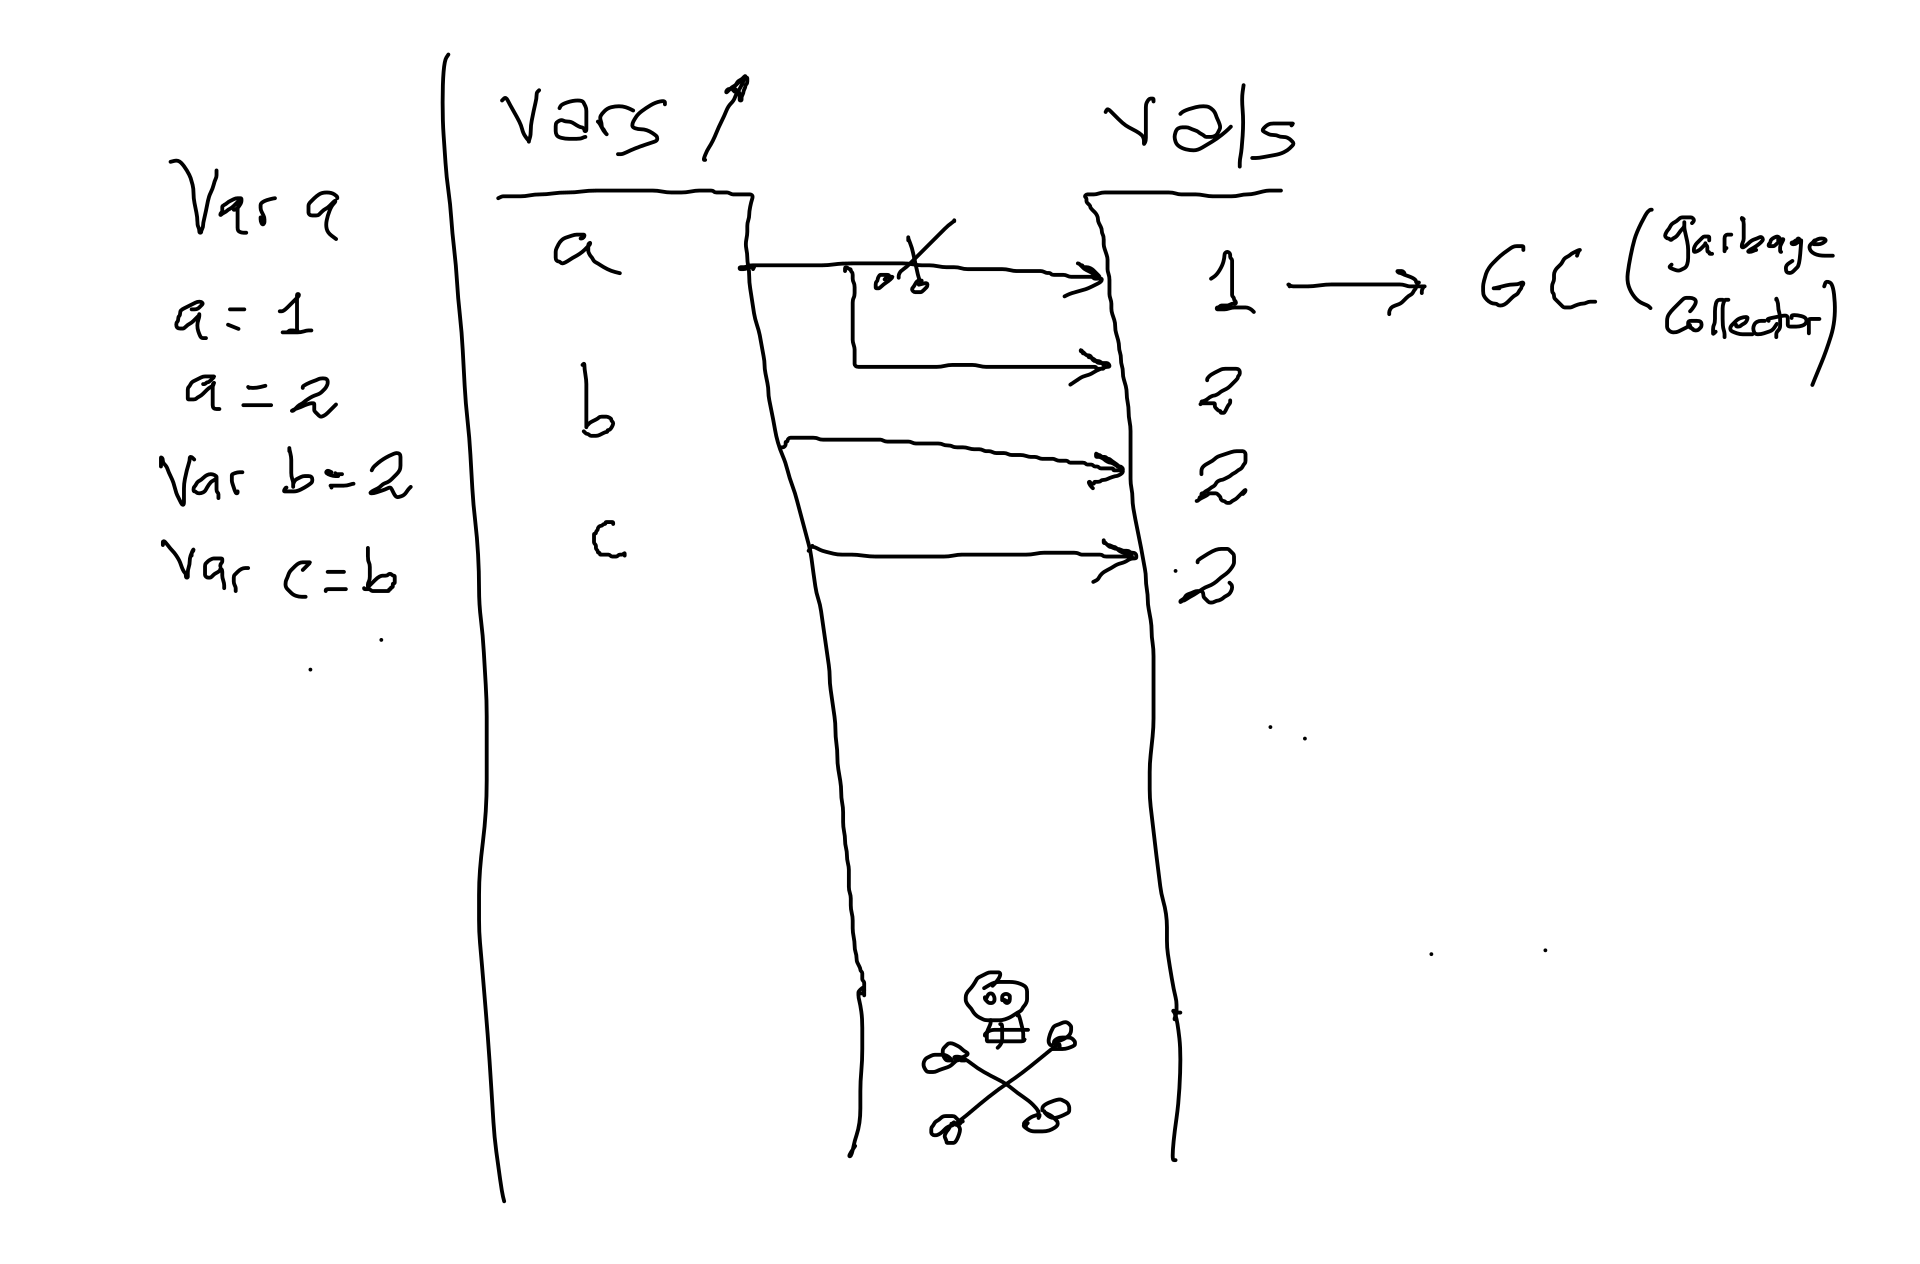 Var a
a = 1
a = 2
Var b = 2
Var c = b
Vars
a
b
c
Vals
1
2
2
2
GC (garbage
Collector)